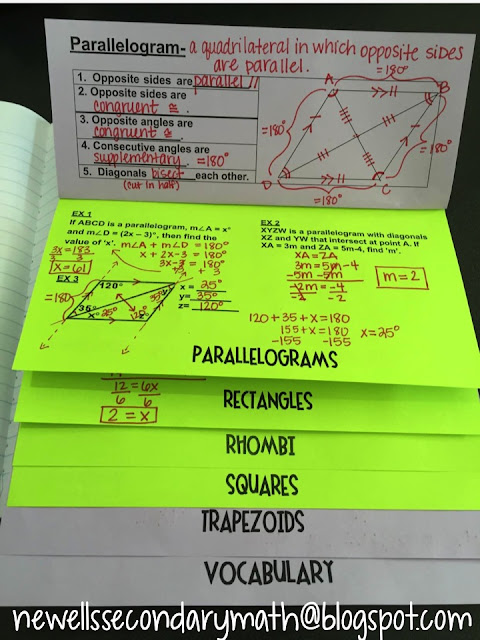 Parallelogram- a quadrilateral in which opposite sides
are parallel.
1. Opposite sides are parallel //
2. Opposite sides are
congruent ≅.
3. Opposite angles are
congruent ≅.
4. Consecutive angles are
supplementary. =180°
5. Diagonals bisect each other.
(cut in half)
=180°
A
B
=180°
=180°
D
C
=180°
EX 1
If ABCD is a parallelogram, m∠A = x°
and m∠D = (2x – 3)°, then find the
value of 'x'. m∠A + m∠D = 180°
x + 2x-3 = 180°
3x-3 = 180°
+3 +3
3x = 183
3 3
x = 61
EX 2
XYZW is a parallelogram with diagonals
XZ and YW that intersect at point A. If
XA = 3m and ZA = 5m-4, find 'm'.
XA = ZA
3m = 5m-4
-5m -5m
-2m = -4
-2 -2
m = 2
EX 3
=180°
120°
35°
35°
x° 25°
x = 25°
y = 35°
z = 120°
120 + 35 + x = 180
155 + x = 180
-155 -155
x = 25°
PARALLELOGRAMS
12 = 6x
6 6
2 = x
RECTANGLES
RHOMBI
SQUARES
TRAPEZOIDS
VOCABULARY
newellssecondarymath@blogspot.com